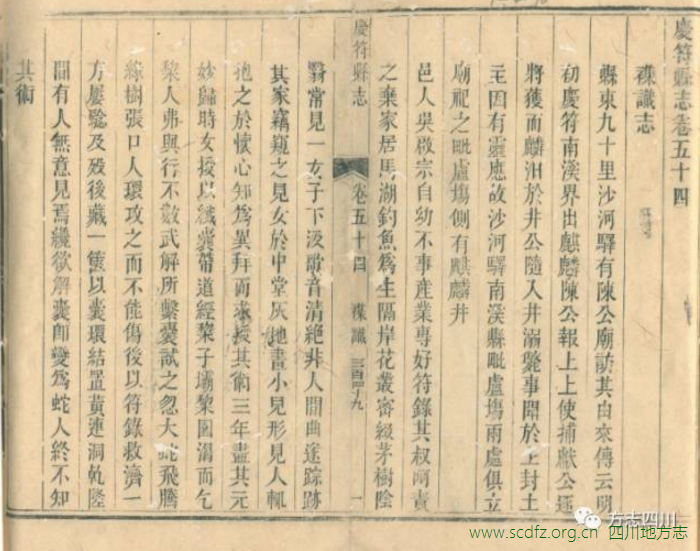 慶符縣志卷五十四
襍識志
縣東九十里沙河驛有陳公廟訪其由來傳云明
初慶符南溪界出麒麟陳公報上上使捕獻公逐
將獲而麟汨於井公隨入井溺斃事聞於上封土
主因有靈應故沙河驛南溪縣毗盧塲兩處俱立
廟祀之毗盧塲側有麒麟井
邑人吳啟宗自幼不事産業專好符錄其叔呵責
之棄家居馬湖釣魚爲生隔岸花叢密綴茅樹陰
慶符縣志
卷五十四
襍識
三百四十九
一
翳常見一女子下汲歌音清絶非人間曲遂踪跡
其家竊窺之見女於中堂灰地畫小兒形見人輒
抱之於懷心知爲異拜而求授其術三年盡其元
妙歸時女授以纎囊帶道經棃子壩棃園渴而乞
棃人弗與行不數武解所繫囊試之忽大蛇飛騰
緣樹張口人環攻之而不能傷後以符錄救濟一
方屢驗及殁後藏一篋以囊環結置黄連洞乾隆
間有人無意見焉纔欲解囊卽變爲蛇人終不知
其術
方志四川
www.scdfz.org.cn 四川地方志